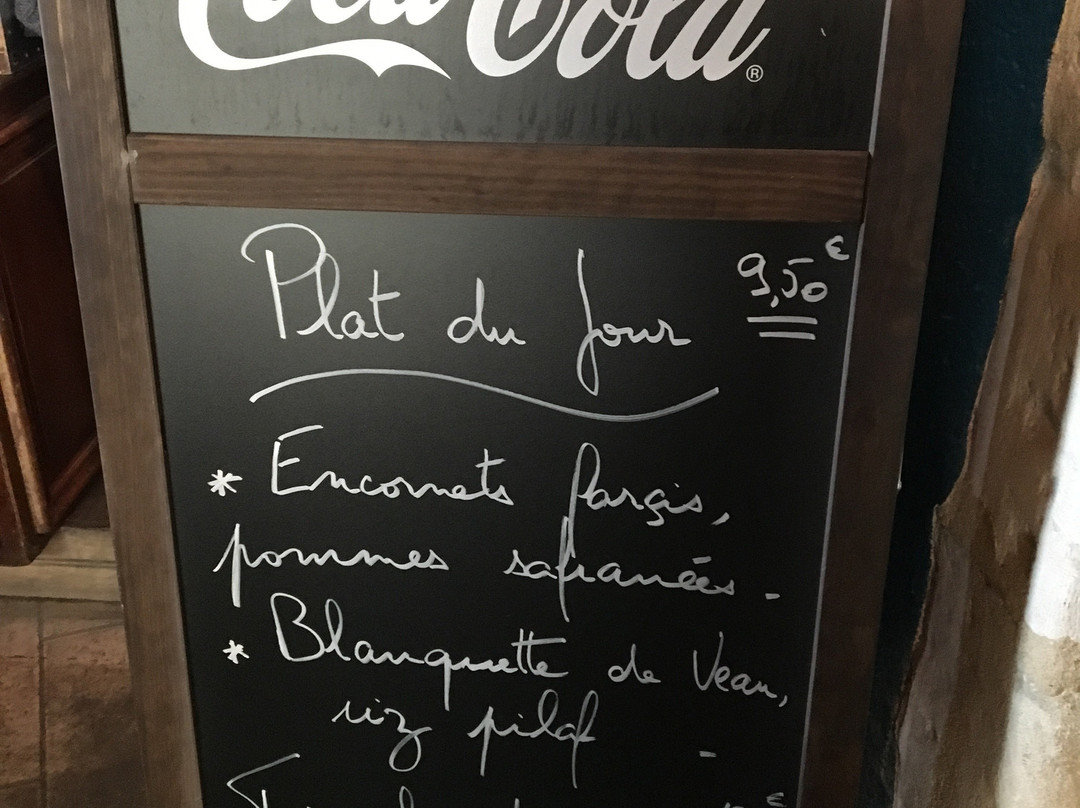 Coca Cola®
Plat du Jour 9,50€
* Encornets farçis,
pommes safranées.
* Blanquette de Veau,
riz pilaf -